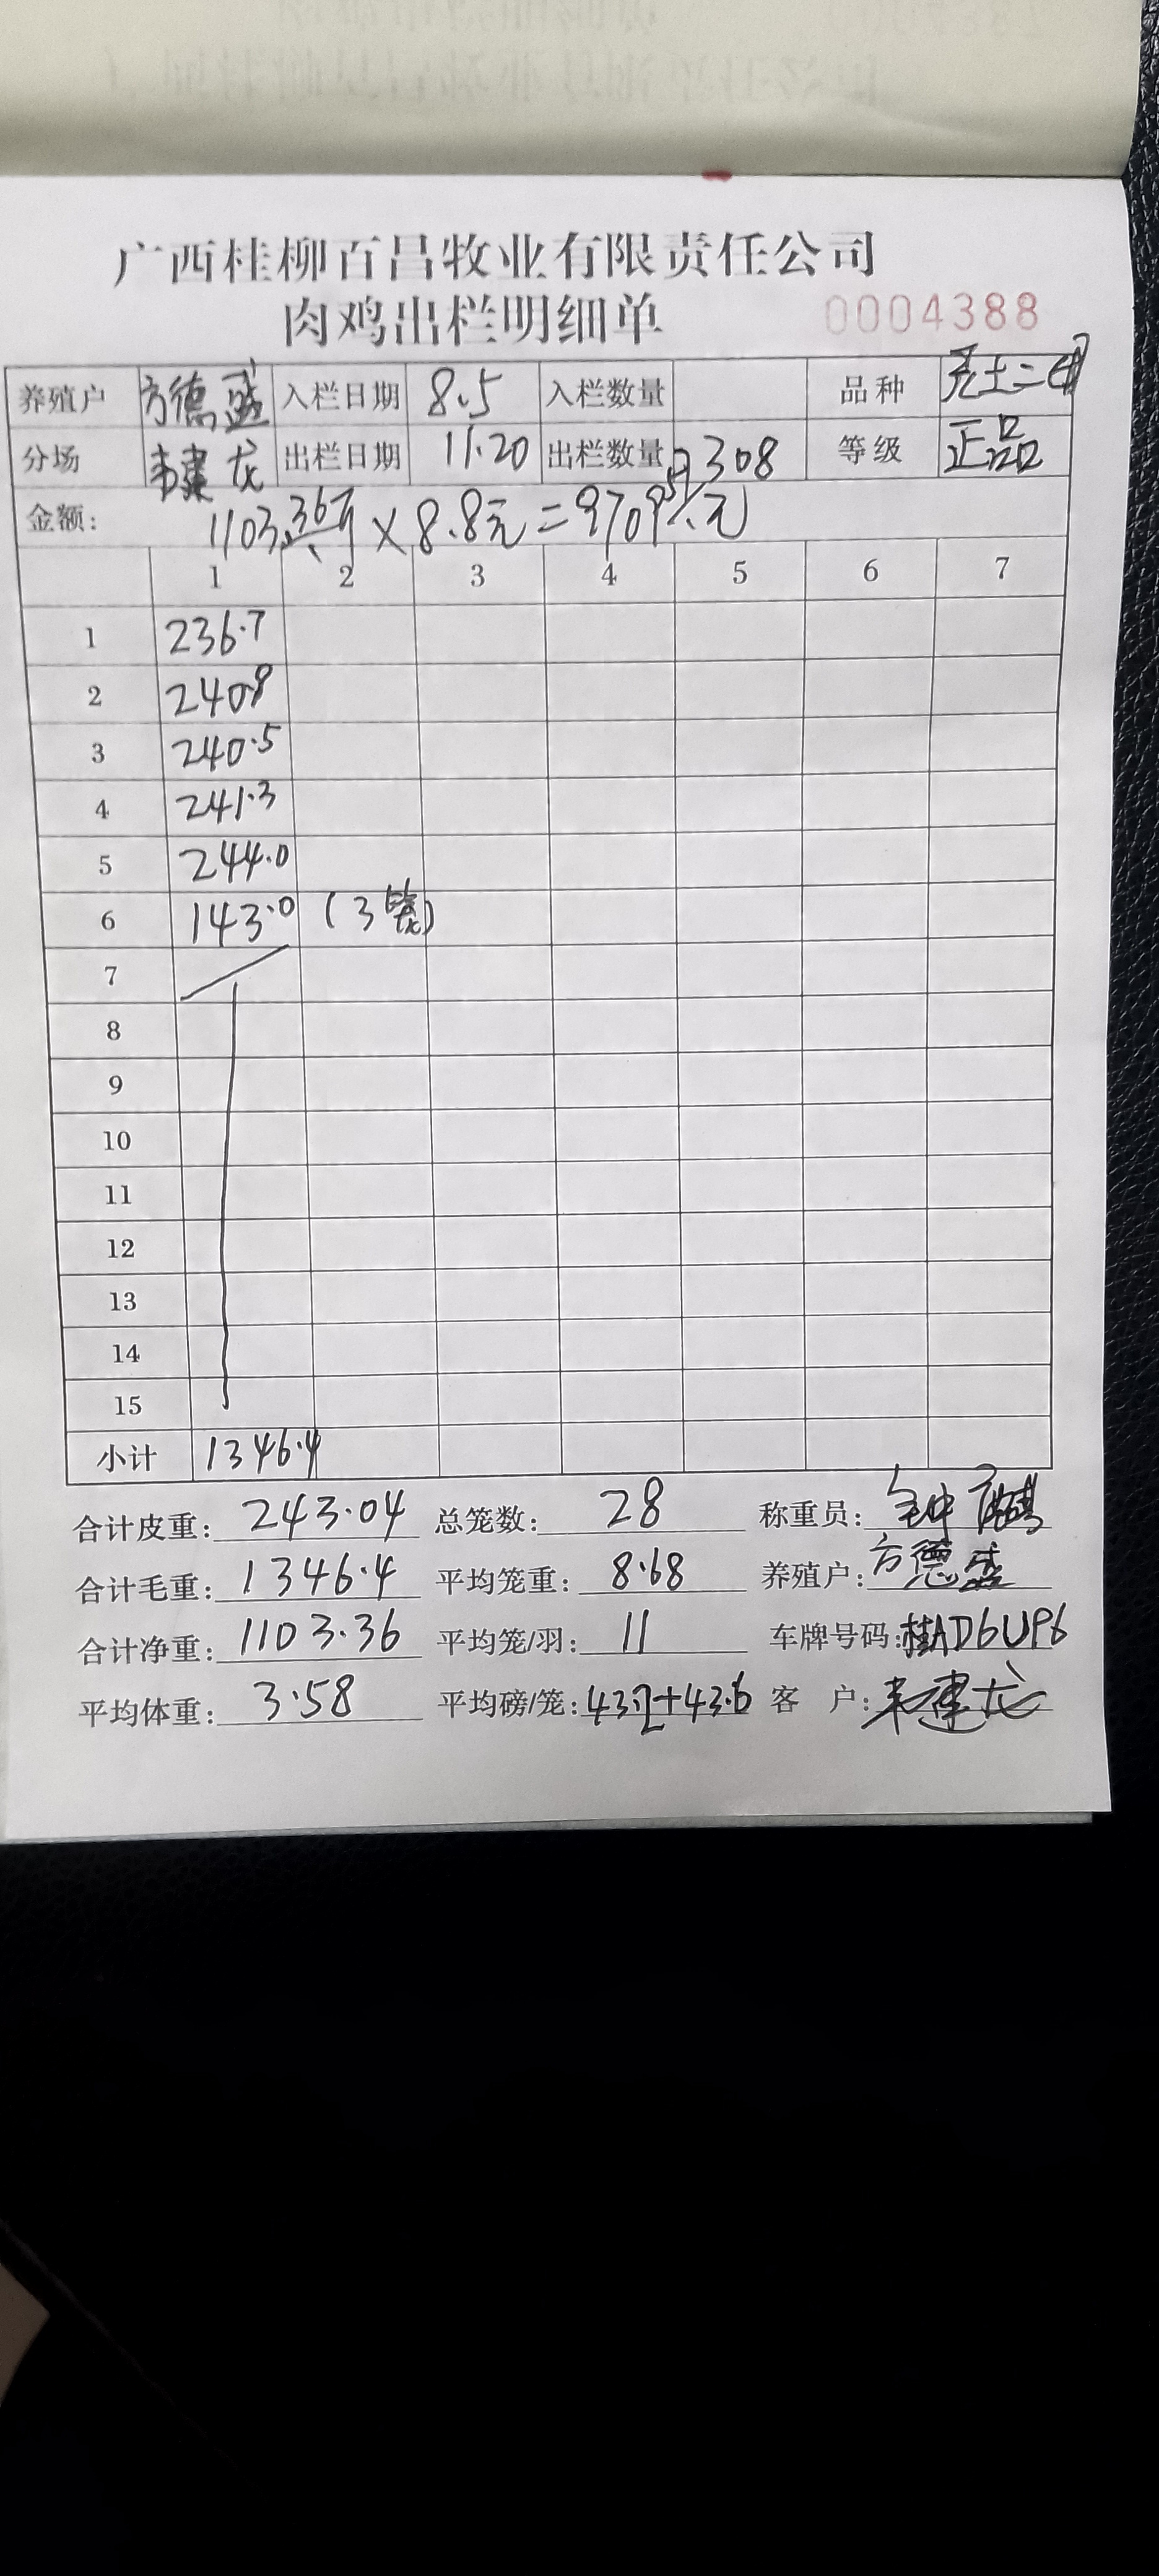 广西桂柳百昌牧业有限责任公司
肉鸡出栏明细单 0004388
养殖户 方德盛 入栏日期 8.5 入栏数量 品种
分场 韦建龙 出栏日期 11.20 出栏数量 308 等级 正品
金额: 1103.36斤×8.8元=9709.5元
1 2 3 4 5 6 7
1 236.7
2 240.9
3 240.5
4 241.3
5 244.0
6 143.0 (3笼)
7
8
9
10
11
12
13
14
15
小计 1346.4
合计皮重: 243.04 总笼数: 28 称重员: 钟
合计毛重: 1346.4 平均笼重: 8.68 养殖户: 方德盛
合计净重: 1103.36 平均笼/羽: 11 车牌号码: 桂AD6UP6
平均体重: 3.58 平均磅/笼: 43.2+43.6 客 户: 韦建龙